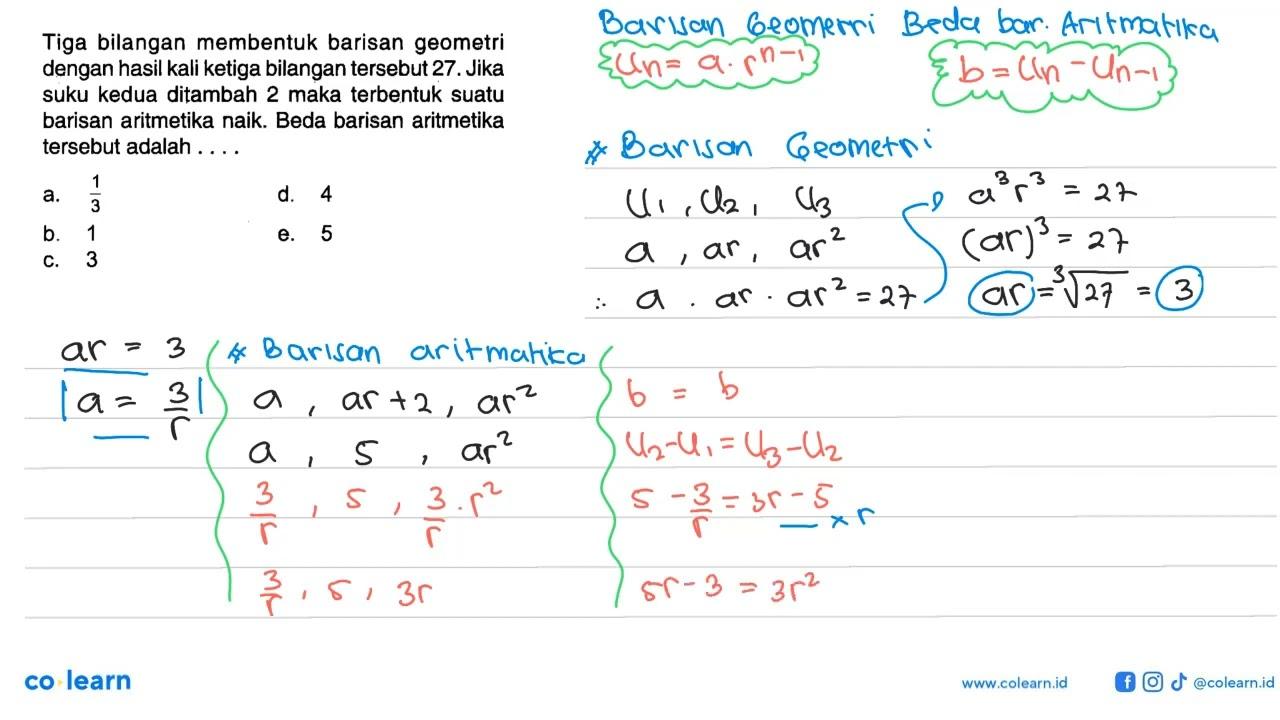 Tiga bilangan membentuk barisan geometri
dengan hasil kali ketiga bilangan tersebut 27. Jika
suku kedua ditambah 2 maka terbentuk suatu
barisan aritmetika naik. Beda barisan aritmetika
tersebut adalah . . . .
a. 1/3
d. 4
b. 1
e. 5
c. 3
Barisan Geometri Beda bar. Aritmatika
Un = a . r^(n-1)
b = Un - Un-1
* Barisan Geometri
U1, U2, U3
a , ar, ar²
∴ a . ar . ar² = 27
a³r³ = 27
(ar)³ = 27
ar = ³√27 = 3
ar = 3
a = 3/r
* Barisan aritmatika
a , ar + 2, ar²
a , 5 , ar²
3/r , 5 , 3/r . r²
3/r , 5 , 3r
b = b
U2 - U1 = U3 - U2
5 - 3/r = 3r - 5
× r
5r - 3 = 3r²
co learn
www.colearn.id
@colearn.id